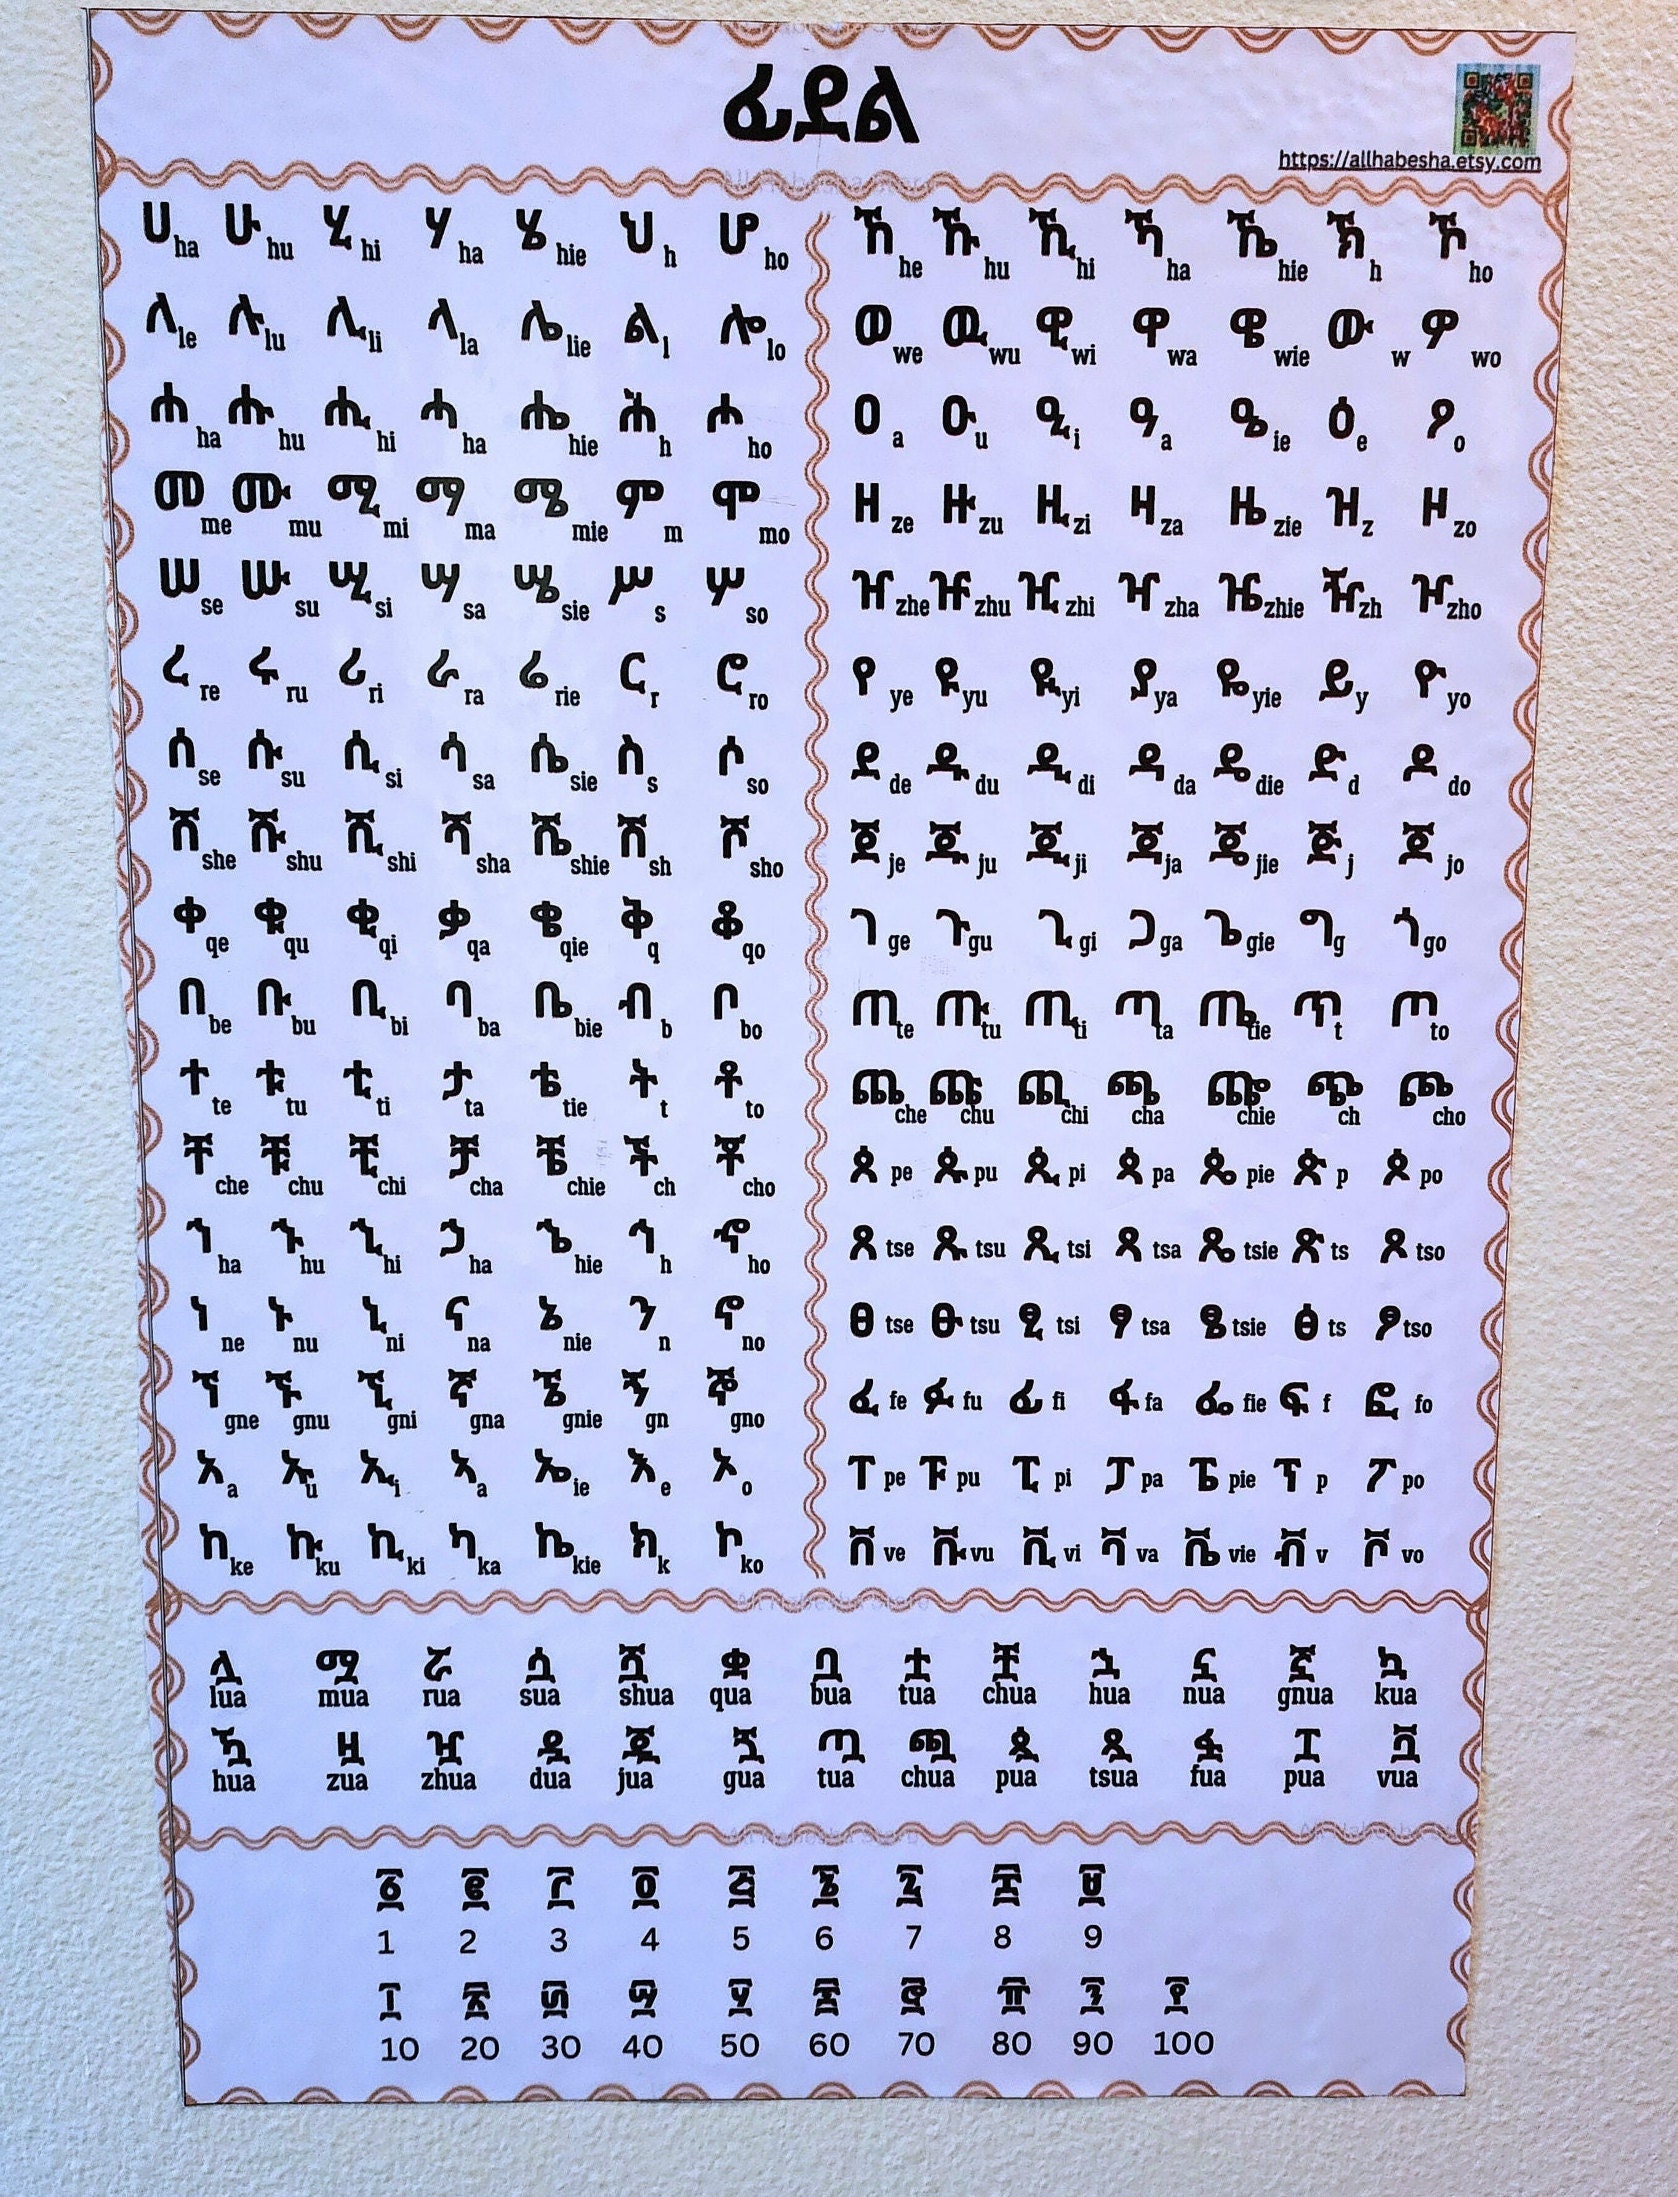 ፊደል
https://allhabesha.etsy.com
ሀ ha ሁ hu ሂ hi ሃ ha ሄ hie ህ h ሆ ho
ለ le ሉ lu ሊ li ላ la ሌ lie ል l ሎ lo
ሐ ha ሑ hu ሒ hi ሓ ha ሔ hie ሕ h ሖ ho
መ me ሙ mu ሚ mi ማ ma ሜ mie ም m ሞ mo
ሠ se ሡ su ሢ si ሣ sa ሤ sie ሥ s ሦ so
ረ re ሩ ru ሪ ri ራ ra ሬ rie ር r ሮ ro
ሰ se ሱ su ሲ si ሳ sa ሴ sie ስ s ሶ so
ሸ she ሹ shu ሺ shi ሻ sha ሼ shie ሽ sh ሾ sho
ቀ qe ቁ qu ቂ qi ቃ qa ቄ qie ቅ q ቆ qo
በ be ቡ bu ቢ bi ባ ba ቤ bie ብ b ቦ bo
ተ te ቱ tu ቲ ti ታ ta ቴ tie ት t ቶ to
ቸ che ቹ chu ቺ chi ቻ cha ቼ chie ች ch ቾ cho
ኀ ha ኁ hu ኂ hi ኃ ha ኄ hie ኅ h ኆ ho
ነ ne ኑ nu ኒ ni ና na ኔ nie ን n ኖ no
ኘ gne ኙ gnu ኚ gni ኛ gna ኜ gnie ኝ gn ኞ gno
አ a ኡ u ኢ i ኣ a ኤ ie እ e ኦ o
ከ ke ኩ ku ኪ ki ካ ka ኬ kie ክ k ኮ ko
ኸ he ኹ hu ኺ hi ኻ ha ኼ hie ኽ h ኾ ho
ወ we ዉ wu ዊ wi ዋ wa ዌ wie ው w ዎ wo
ዐ a ዑ u ዒ i ዓ a ዔ ie ዕ e ዖ o
ዘ ze ዙ zu ዚ zi ዛ za ዜ zie ዝ z ዞ zo
ዠ zhe ዡ zhu ዢ zhi ዣ zha ዤ zhie ዥ zh ዦ zho
የ ye ዩ yu ዪ yi ያ ya ዬ yie ይ y ዮ yo
ደ de ዱ du ዲ di ዳ da ዴ die ድ d ዶ do
ጀ je ጁ ju ጂ ji ጃ ja ጄ jie ጅ j ጆ jo
ገ ge ጉ gu ጊ gi ጋ ga ጌ gie ግ g ጎ go
ጠ te ጡ tu ጢ ti ጣ ta ጤ tie ጥ t ጦ to
ጨ che ጩ chu ጪ chi ጫ cha ጬ chie ጭ ch ጮ cho
ጰ pe ጱ pu ጲ pi ጳ pa ጴ pie ጵ p ጶ po
ጸ tse ጹ tsu ጺ tsi ጻ tsa ጼ tsie ጽ ts ጾ tso
ፀ tse ፁ tsu ፂ tsi ፃ tsa ፄ tsie ፅ ts ፆ tso
ፈ fe ፉ fu ፊ fi ፋ fa ፌ fie ፍ f ፎ fo
ፐ pe ፑ pu ፒ pi ፓ pa ፔ pie ፕ p ፖ po
ቨ ve ቩ vu ቪ vi ቫ va ቬ vie ቭ v ቮ vo
ሏ ሟ ሯ ሷ ሿ ቋ ቧ ቷ ቿ ኋ ኗ ኟ ኳ
lua mua rua sua shua qua bua tua chua hua nua gnua kua
ዃ ዟ ዧ ዷ ጇ ጓ ጧ ጯ ጷ ጿ ፏ ፗ ቯ
hua zua zhua dua jua gua tua chua pua tsua fua pua vua
፩ ፪ ፫ ፬ ፭ ፮ ፯ ፰ ፱
1 2 3 4 5 6 7 8 9
፲ ፳ ፴ ፵ ፶ ፷ ፸ ፹ ፺ ፻
10 20 30 40 50 60 70 80 90 100